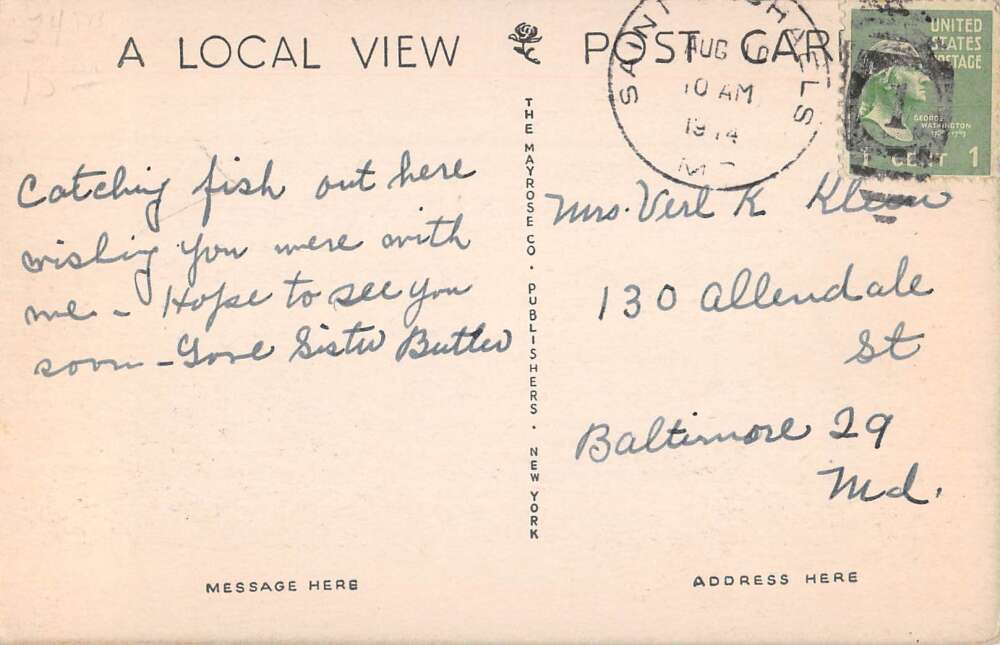 A LOCAL VIEW
POST CAR
SAINT MICHAELS
AUG 10
10 AM
1944
UNITED
STATES
POSTAGE
GEORGE
WASHINGTON
1 CENT 1
Catching fish out here
wishing you were with
me - Hope to see you
soon - Love Sister Butler
THE MAYROSE CO. PUBLISHERS. NEW YORK
Mrs. Verl K
130 Allendale
St
Baltimore 29
Md.
MESSAGE HERE
ADDRESS HERE